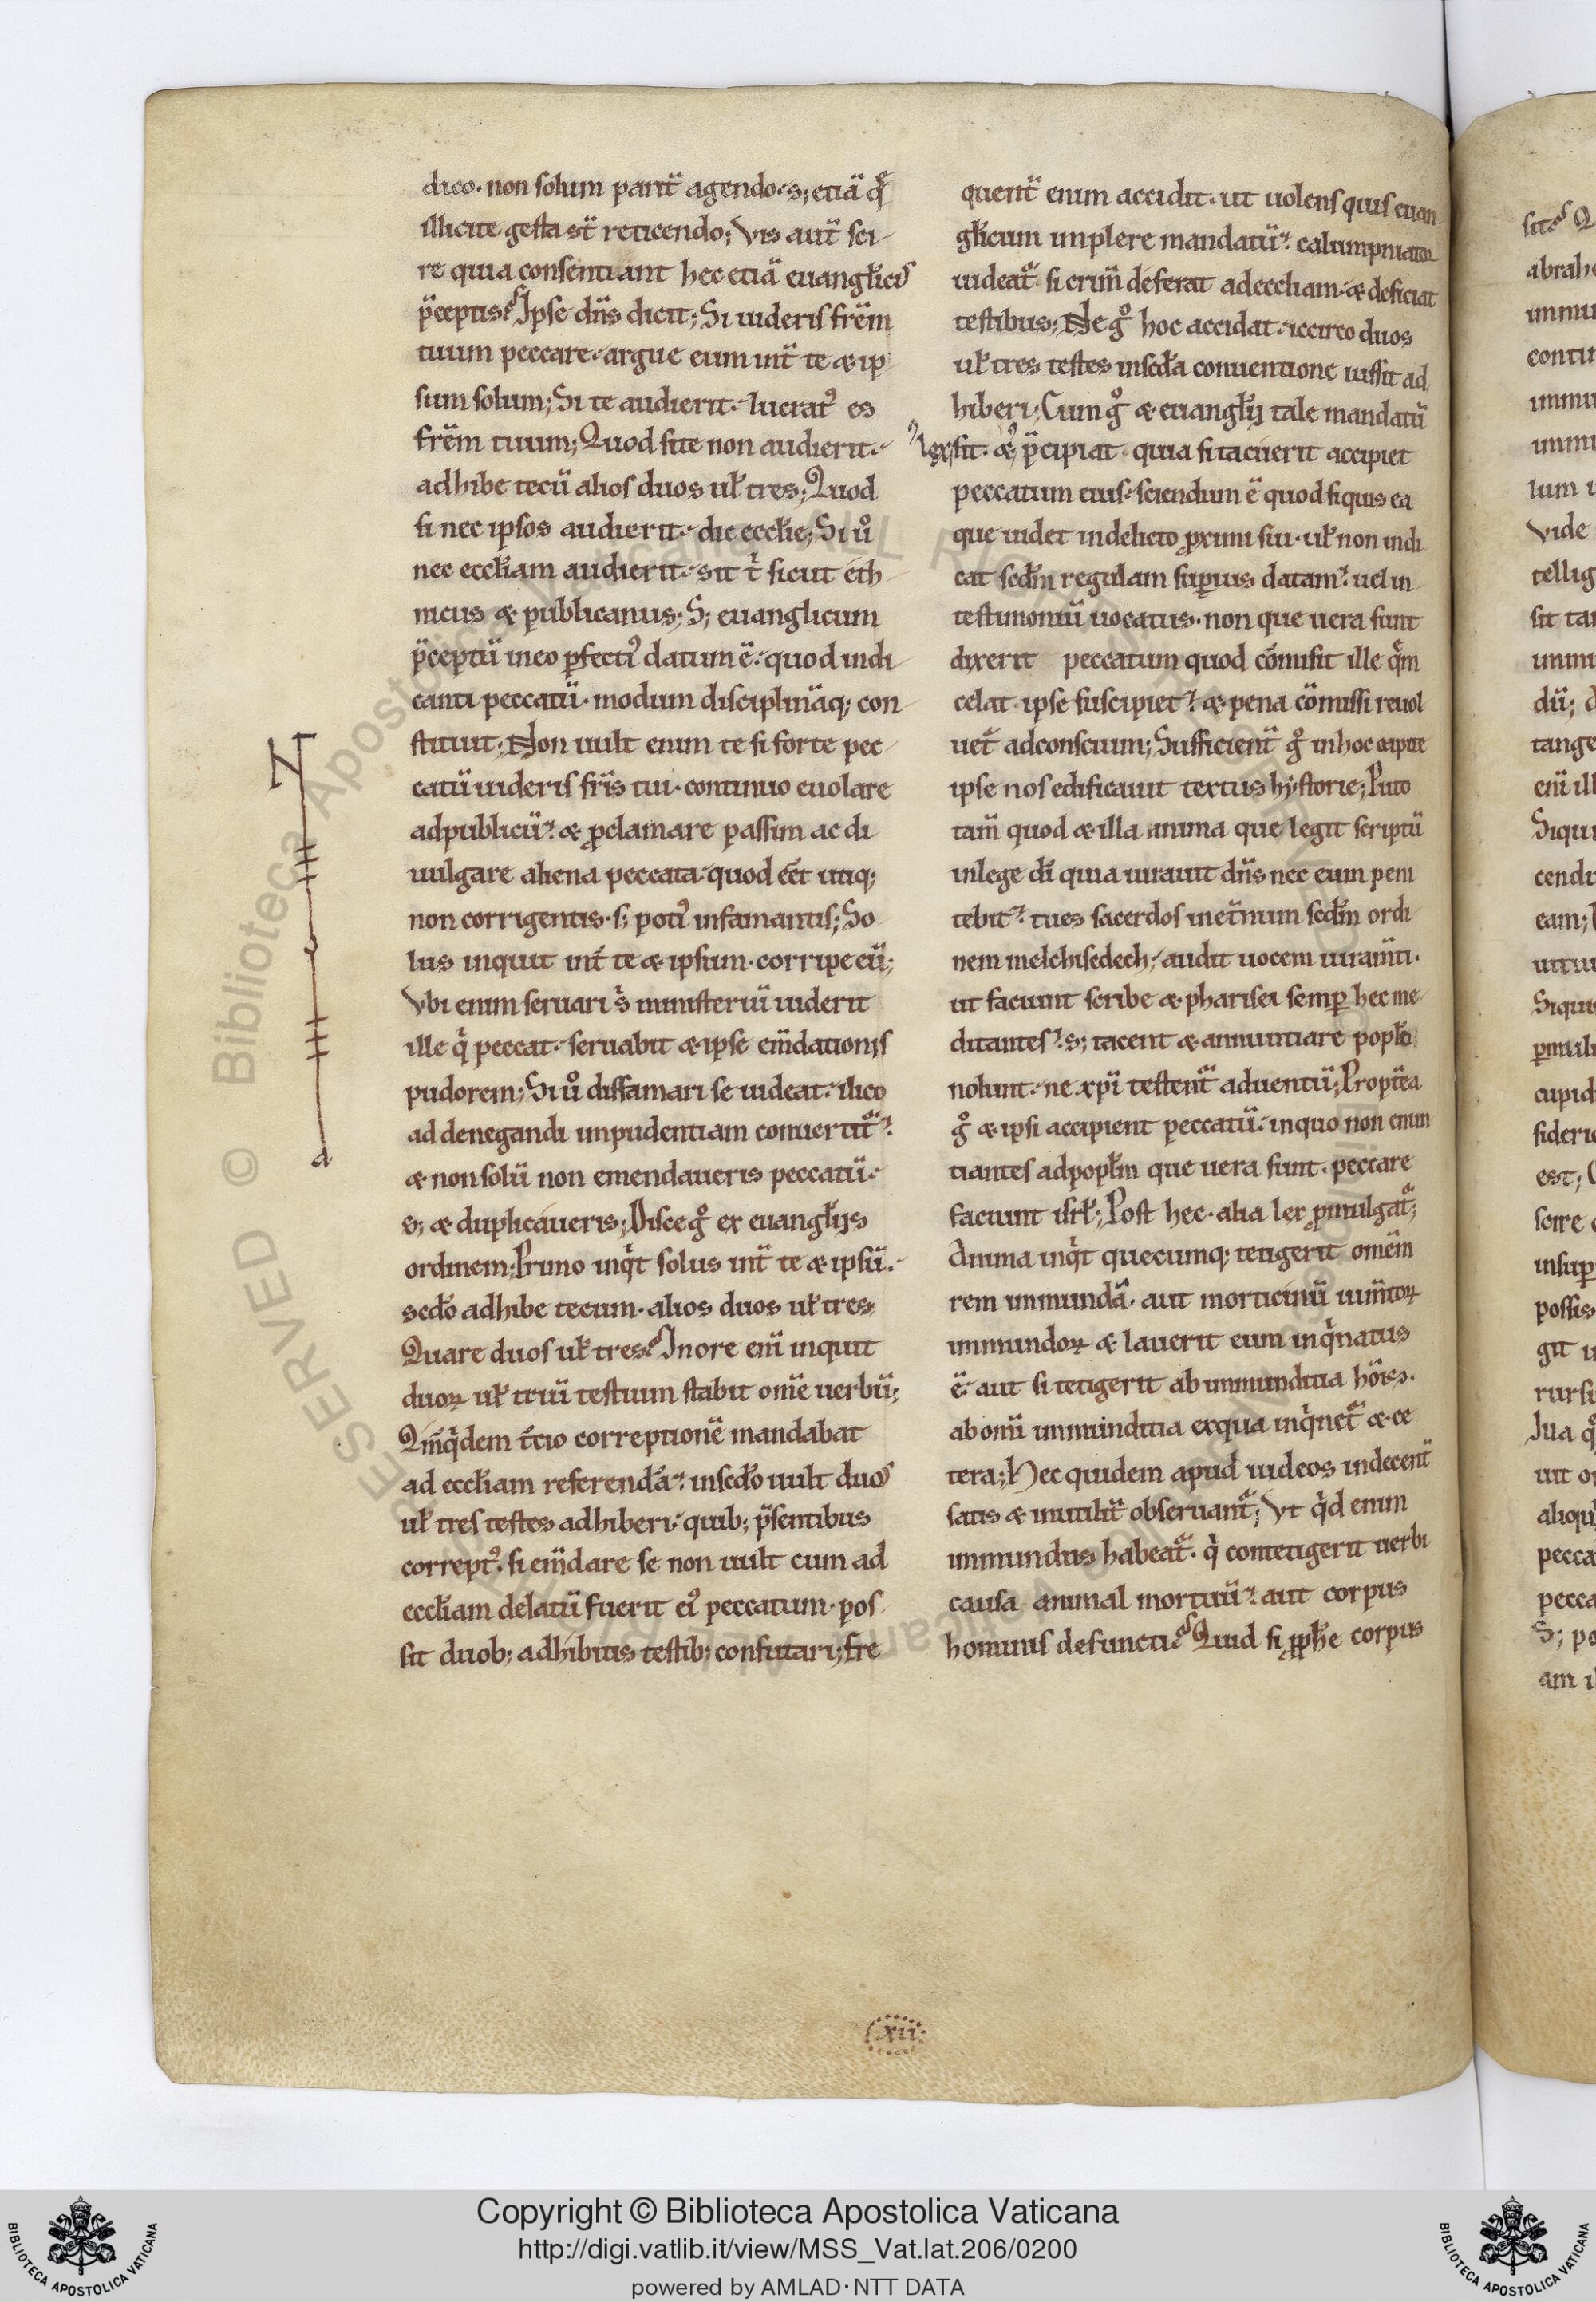 dico. non solum parit̄ agendo. s; etiā q̄
illicite gesta st̄ reticendo; Vis aut̄ sci
re quia consentiant hec etiā euangl̄icis
p̄ceptis? Ipse dn̄s dicit; Si uideris frēm
tuum peccare. argue eum int̄ te & ip
sum solum; Si te audierit. lucrat᷒ es
frēm tuum; Quod si te non audierit.
adhibe tecū alios duos ul̄ tres; Quod
si nec ipsos audierit. dic eccl̄ie; Si uͦ
nec eccl̄iam audierit. sit t̄ sicut eth
nicus & publicanus; S; euanglicum
p̄ceptū in eo ꝑfecti᷒ datum ē. quod indi
canti peccatū. modum disciplināq; con
stituit; Non uult enim te si forte pec
catū uideris fr̄is tui. continuo euolare
ad publicū. & ꝓclamare passim ac di
uulgare aliena peccata. quod eēt utiq;
non corrigentis. s; poti᷒ infamantis; So
lus inquit int̄ te & ipsum. corripe eū;
Vbi enim seruari s̄ ministeriū uiderit
ille q̄ peccat. seruabit & ipse em̄dationis
pudorem; Si uͦ diffamari se uideat. ilico
ad denegandi impudentiam conuertit᷒.
& non solū non emendaueris peccatū.
s; & duplicaueris; Disce gͦ ex euangl̄ijs
ordinem; Primo inq̄t solus int̄ te & ipsū.
sedo adhibe tecum. alios duos ul̄ tres;
Quare duos ul̄ tres? In ore eni inquit
duoꝝ ul̄ triū testium stabit om̄e uerbū;
Qm̄ q̄dem t̄cio correptionē mandabat
ad eccl̄iam referendā. in sedo uult duos
ul̄ tres testes adhiberi. quib; p̄sentibus
corrept᷒. si em̄dare se non uult cum ad
eccl̄iam delatū fuerit ei᷒ peccatum. pos
sit duob; adhibitis testib; confutari; fre
quent̄ enim accidit. ut uolens quis euan
gl̄icum implere mandatū. calumpniatoꝝ
uideat᷒. si crim̄ deferat ad eccliam. & deficiat
testibus; Ne gͦ hoc accidat. iccirco duos
ul̄ tres testes in sed̄a conuentione iussit ad
hiberi; Cum gͦ & euangl̄ij tale mandatū
lex sit. & p̄cipiat. quia si tacuerit accipiet
peccatum eius. sciendum ē quod si quis ea
que uidet in delicto ꝓximi sui. ul̄ non indi
cat sed̄m regulam suꝑius datam. uel in
testimoniū uocatus. non que uera sunt
dixerit peccatum quod cōmisit ille q̄m
celat. ipse suscipiet. & pena cōmissi reuol
uet᷒ ad conscium; Sufficient̄ gͦ in hoc capite
ipse nos edificauit textus hystorie; Puto
tam̄ quod & illa anima que legit scriptū
in lege d̄i quia iurauit dn̄s nec eum peni
tebit. tu es sacerdos in et̄num sed̄m ordi
nem melchisedech. audit uocem iuram̄ti.
ut faciunt scribe & pharisei semꝑ hec me
ditantes. s; tacent & annuntiare popl̄o
nolunt. ne xp̄i testent᷒ aduentū; Propt̄ea
gͦ & ipsi accipient peccatū. in quo non enun
tiantes ad popl̄m que uera sunt. peccare
faciunt isrl̄; Post hec. alia lex ꝓmulgat᷒;
Anima inq̄t quecumq; tetigerit omēm
rem immundā. aut morticinū ium̄toꝝ
immundoꝝ & lauerit eum inq̄natus
ē. aut si tetigerit ab immunditia hōis.
ab omi immunditia ex qua inq̄net᷒ & ce
tera; Hec quidem apud iudeos indecent̄
satis & inutilit̄ obseruant᷒; Vt q̄d enim
immundus habeat᷒. q̄ contetigerit uerbi
causa animal mortuū. aut corpus
hominis defuncti? Quid si ꝓph̄e corpus
xii
Copyright © Biblioteca Apostolica Vaticana
http://digi.vatlib.it/view/MSS_Vat.lat.206/0200
powered by AMLAD·NTT DATA
BIBLIOTECA APOSTOLICA VATICANA
BIBLIOTECA APOSTOLICA VATICANA